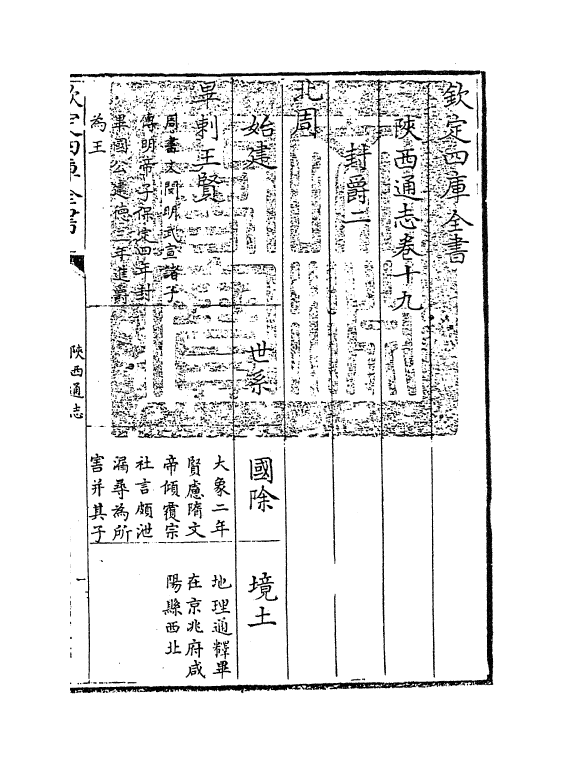 欽定四庫全書
陝西通志卷十九
封爵二
北周
始建
世系
國除
境土
畢剌王賢
周書文閔明武宣諸子
傳明帝子保定四年封
畢國公建德三年進爵
為王
大象二年
賢慮隋文
帝傾覆宗
社言頗泄
漏尋為所
害并其子
地理通釋畢
在京兆府咸
陽縣西北
欽定四庫全書
陝西通志
一